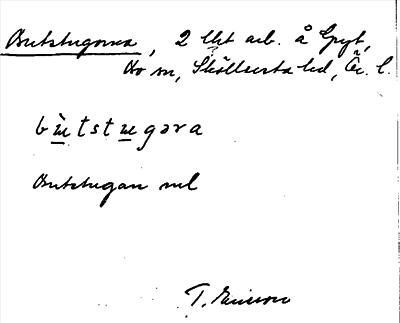 Butstugorna, 2 lht arb. å Gryt,
Do sn, Sköllersta hd, Ör. l.
bùtstugəra
Butstugan ml
T. Ericsson